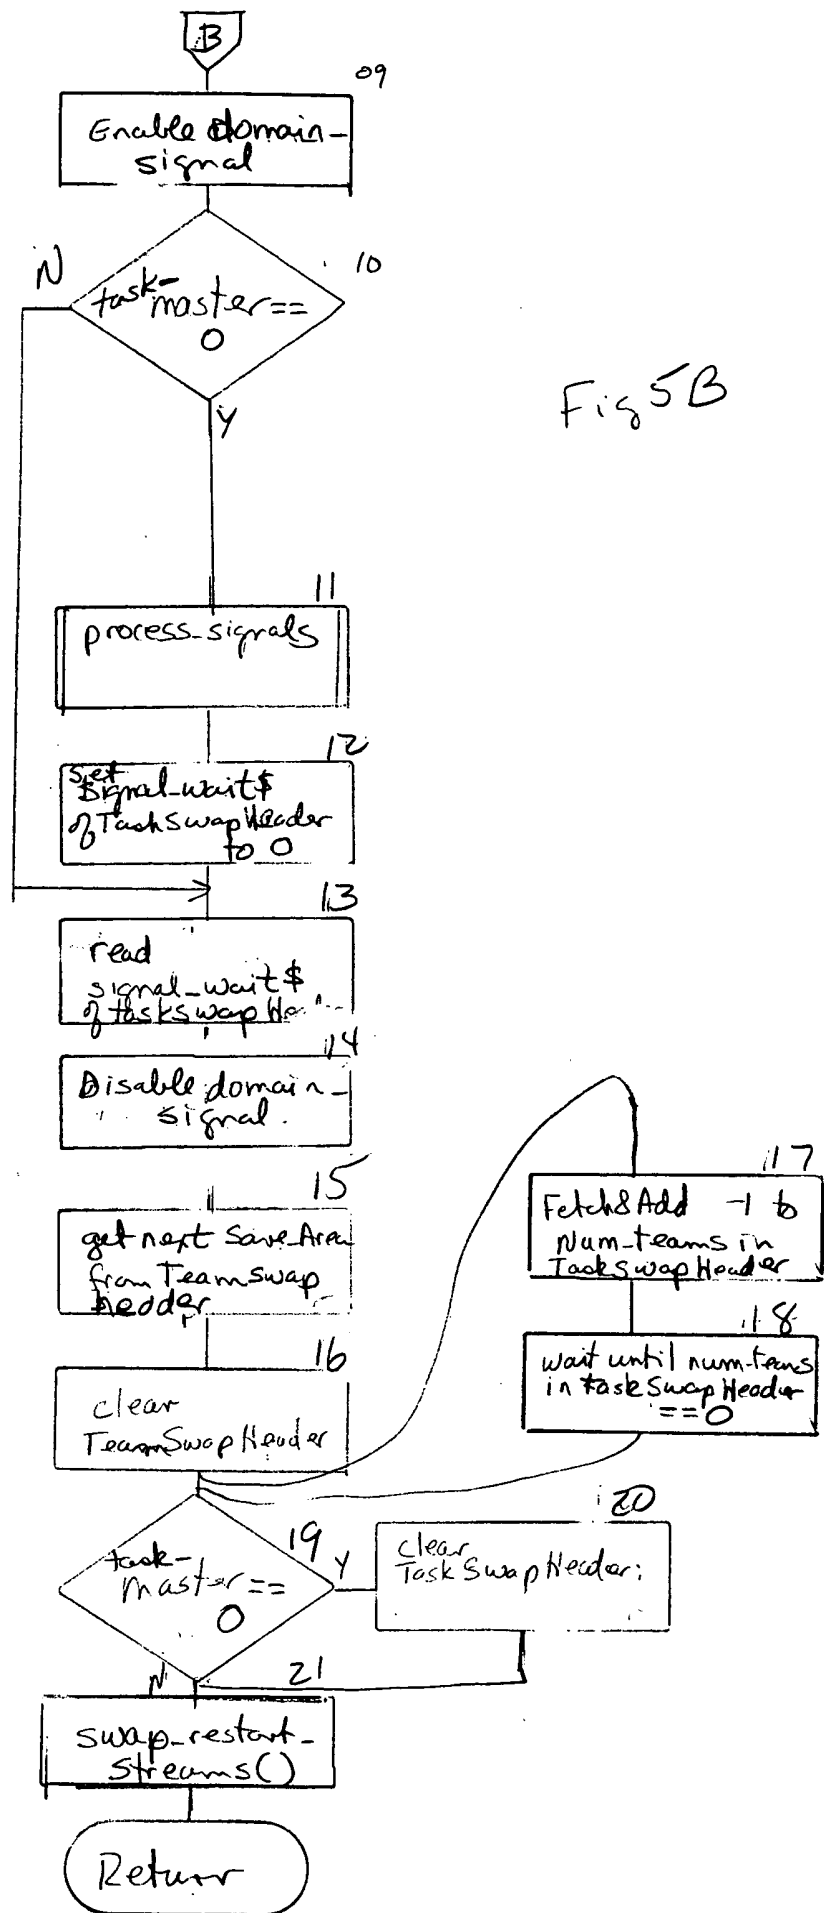 B
09
Enable domain-
signal
N
10
task-
master==
0
Y
Fig 5B
11
process_signals
12
set
signal_wait$
of TaskSwapHeader
to 0
13
read
signal_wait$
of taskSwapHe
14
Disable domain-
signal.
15
get next Save_Area
from TeamSwap
header
16
clear
TeamSwapHeader
17
Fetch&Add -1 to
Num_teams in
TaskSwapHeader
18
wait until num-teams
in taskSwapHeader
==0
19
task-
master==
0
Y
20
clear
TaskSwapHeader;
N
21
swap_restart_
streams()
Return